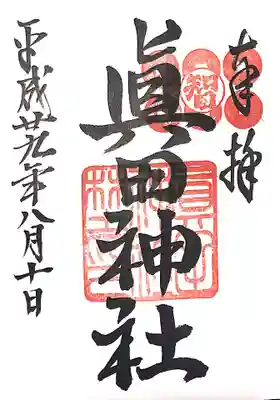 奉拝
眞田神社
平成廿九年八月十日
智